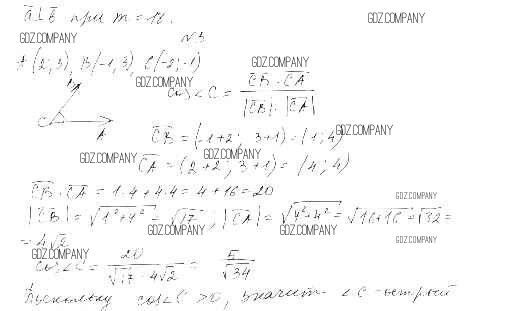 a̅ ⊥ b̅ при m = 18.
GDZ.COMPANY
№3
GDZ.COMPANY
A(2; 3), B(-1, 3), C(-2; -1)
GDZ.COMPANY
GDZ.COMPANY
cos∠C = (C̅B̅ · C̅A̅) / (|C̅B̅| · |C̅A̅|)
B
C
A
C̅B̅ = (-1+2; 3+1) = (1; 4)
GDZ.COMPANY
GDZ.COMPANY
GDZ.COMPANY
C̅A̅ = (2+2; 3+1) = (4; 4)
C̅B̅ · C̅A̅ = 1·4 + 4·4 = 4 + 16 = 20
GDZ.COMPANY
|C̅B̅| = √(1²+4²) = √17; |C̅A̅| = √(4²+4²) = √(16+16) = √32 =
GDZ.COMPANY
GDZ.COMPANY
GDZ.COMPANY
= 4√2
GDZ.COMPANY
cos∠C = 20 / (√17 · 4√2) = 5 / √34
Поскольку cos∠C > 0, значит ∠C - острый